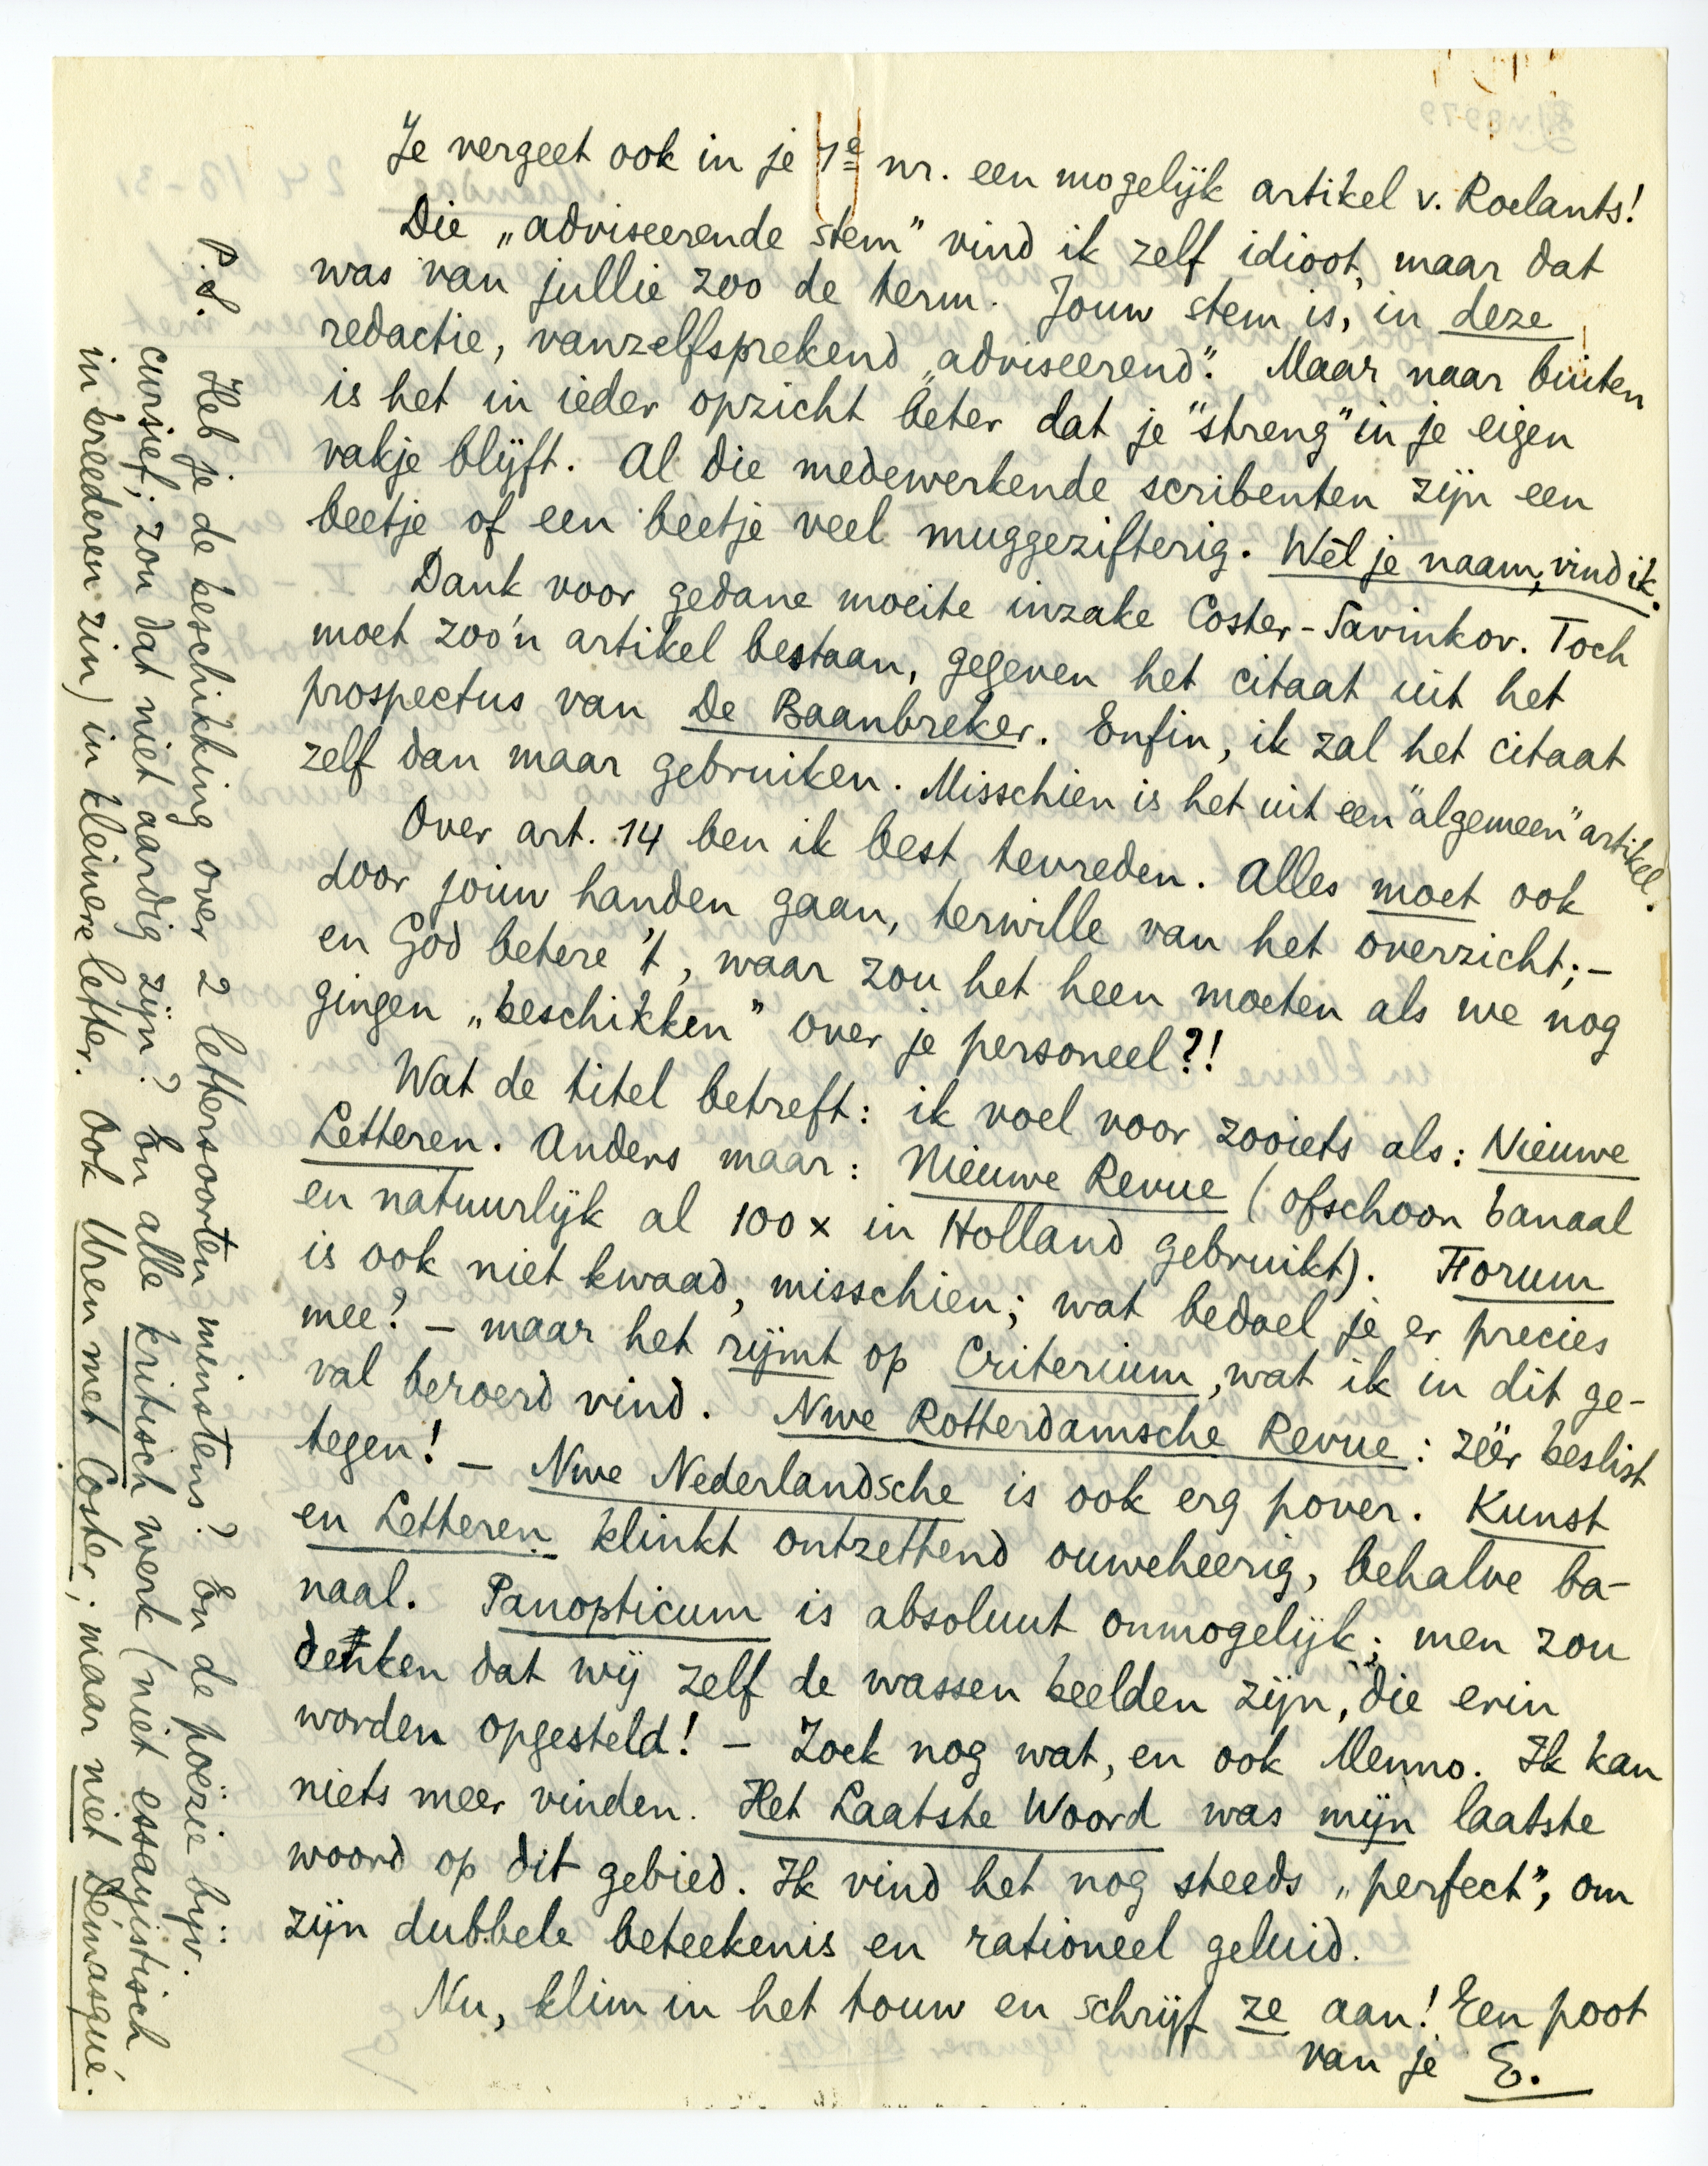 Je vergeet ook in je 1e nr. een mogelijk artikel v. Roelants!
Die „adviseerende stem” vind ik zelf idioot, maar dat
was van jullie zoo de term. Jouw stem is, in deze
redactie, vanzelfsprekend „adviseerend”. Maar naar buiten
is het in ieder opzicht beter dat je "streng" in je eigen
vakje blijft. Al die medewerkende scribenten zijn een
beetje of een beetje veel muggezifterig. Wèl je naam, vind ik.
Dank voor gedane moeite inzake Coster-Savinkov. Toch
moet zoo'n artikel bestaan, gegeven het citaat uit het
prospectus van De Baanbreker. Enfin, ik zal het citaat
zelf dan maar gebruiken. Misschien is het uit een "algemeen" artikel.
Over art. 14 ben ik best tevreden. Alles moet ook
door jouw handen gaan, terwille van het overzicht; –
en God betere 't, waar zou het heen moeten als we nog
gingen „beschikken” over je personeel?!
Wat de titel betreft: ik voel voor zooiets als: Nieuwe
Letteren. Anders maar: Nieuwe Revue (ofschoon banaal
en natuurlijk al 100 x in Holland gebruikt). Forum
is ook niet kwaad, misschien; wat bedoel je er precies
mee? – maar het rijmt op Criterium, wat ik in dit ge-
val beroerd vind. Nwe Rotterdamsche Revue: zéér beslist
tegen! – Nwe Nederlandsche is ook erg pover. Kunst
en Letteren klinkt ontzettend ouweheerig, behalve ba-
naal. Panopticum is absoluut onmogelijk; men zou
denken dat wij zelf de wassen beelden zijn, die erin
worden opgesteld! – Zoek nog wat, en ook Menno. Ik kan
niets meer vinden. Het Laatste Woord was mijn laatste
woord op dit gebied. Ik vind het nog steeds „perfect”, om
zijn dubbele beteekenis en rationeel geluid.
Nu, klim in het touw en schrijf ze aan! Een poot
van je E.
P.S. Heb je de beschikking over 2 lettersoorten minstens? En de poëzie bijv.
cursief; zou dat niet aardig zijn? En alle kritisch werk (niet essayistisch
in breederen zin) in kleinere letter. Ook Uren met Coster; maar niet Démasqué.